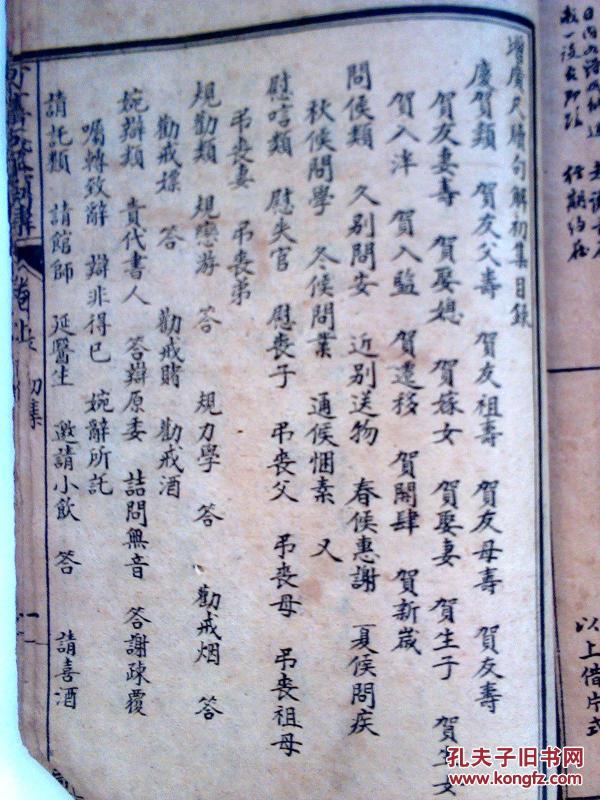 增廣尺牘句解初集目錄
慶賀類 賀友父壽 賀友祖壽 賀友母壽 賀友壽
賀友妻壽 賀娶媳 賀嫁女 賀娶妻 賀生子 賀生女
賀入泮 賀入監 賀遷移 賀開肆 賀新歲
問候類 久別問安 近別送物 春候惠謝 夏候問疾
秋候問學 冬候問業 通候悃素 又
慰唁類 慰失官 慰喪子 弔喪父 弔喪母 弔喪祖母
弔喪妻 弔喪弟
規勸類 規戀游 答 規力學 答 勸戒烟 答
勸戒嫖 答 勸戒賭 勸戒酒
婉辯類 責代書人 答辯原委 詰問無音 答謝疎覆
囑轉致辭 辯非得已 婉辭所託
請託類 請館師 延醫生 邀請小飲 答 請喜酒
初集
以上借片式
孔夫子旧书网
www.kongfz.com